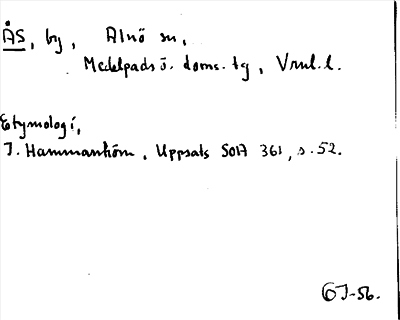 ÅS, by, Alnö sn,
Medelpads ö. doms. tg, Vrnl. l.
Etymologi,
I. Hammarström, Uppsats SOH 361, s. 52.
GJ-56.